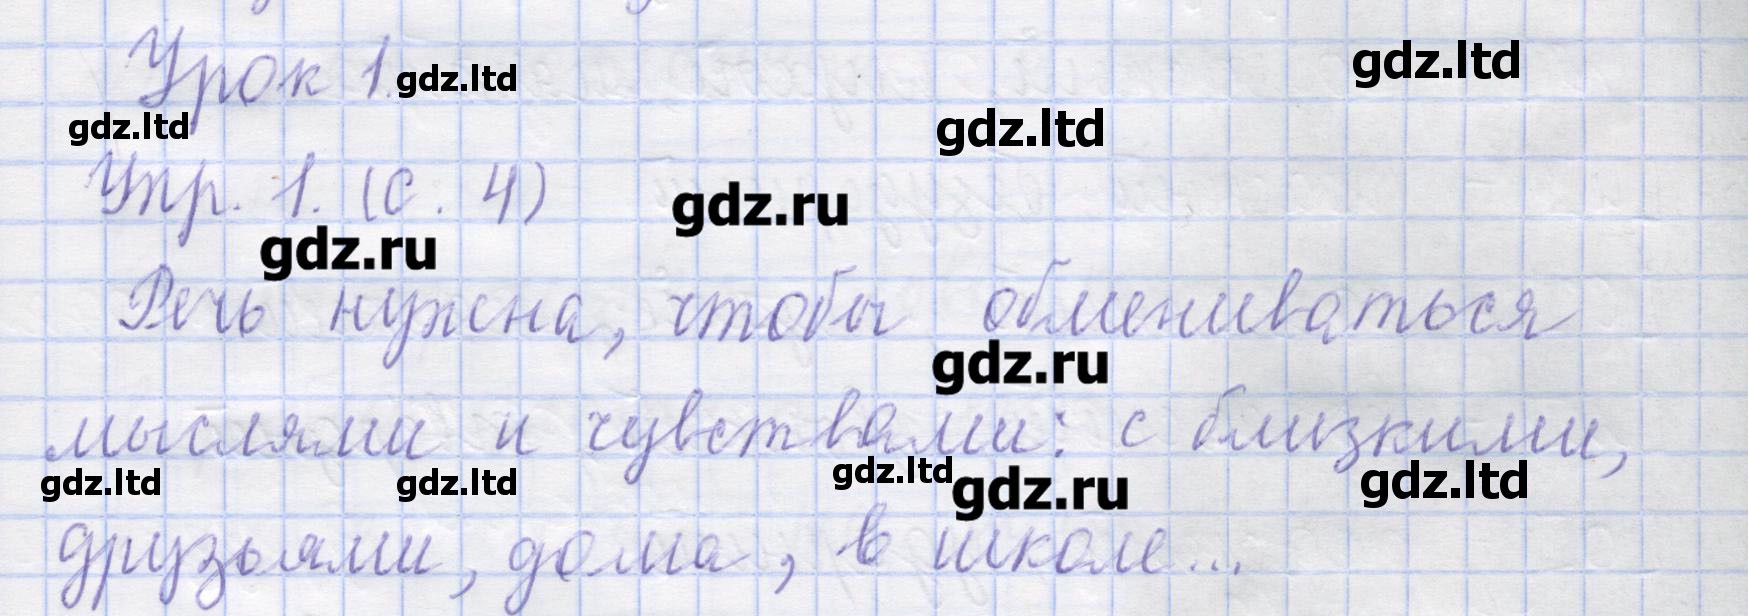 Урок 1.
gdz.ltd
gdz.ltd
gdz.ltd
gdz.ltd
Упр. 1. (с. 4)
gdz.ru
gdz.ru
Речь нужна, чтобы обмениваться
gdz.ru
мыслями и чувствами: с близкими,
gdz.ltd
gdz.ltd
gdz.ltd
gdz.ru
gdz.ltd
друзьями, дома, в школе...